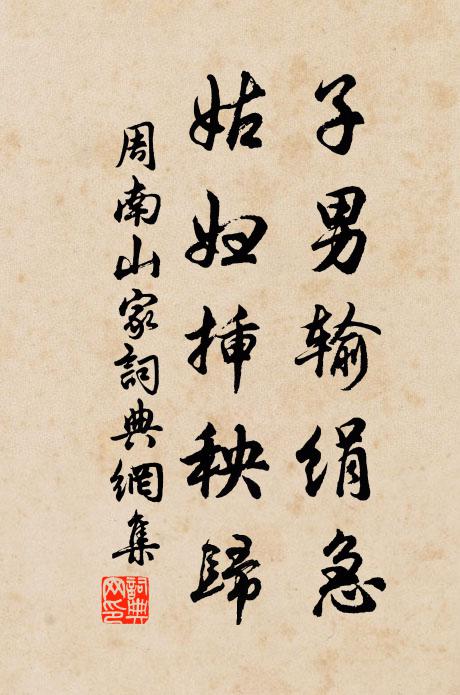 子男输绢急
姑妇揷秧歸
周南山家詞典網集
詞典网印